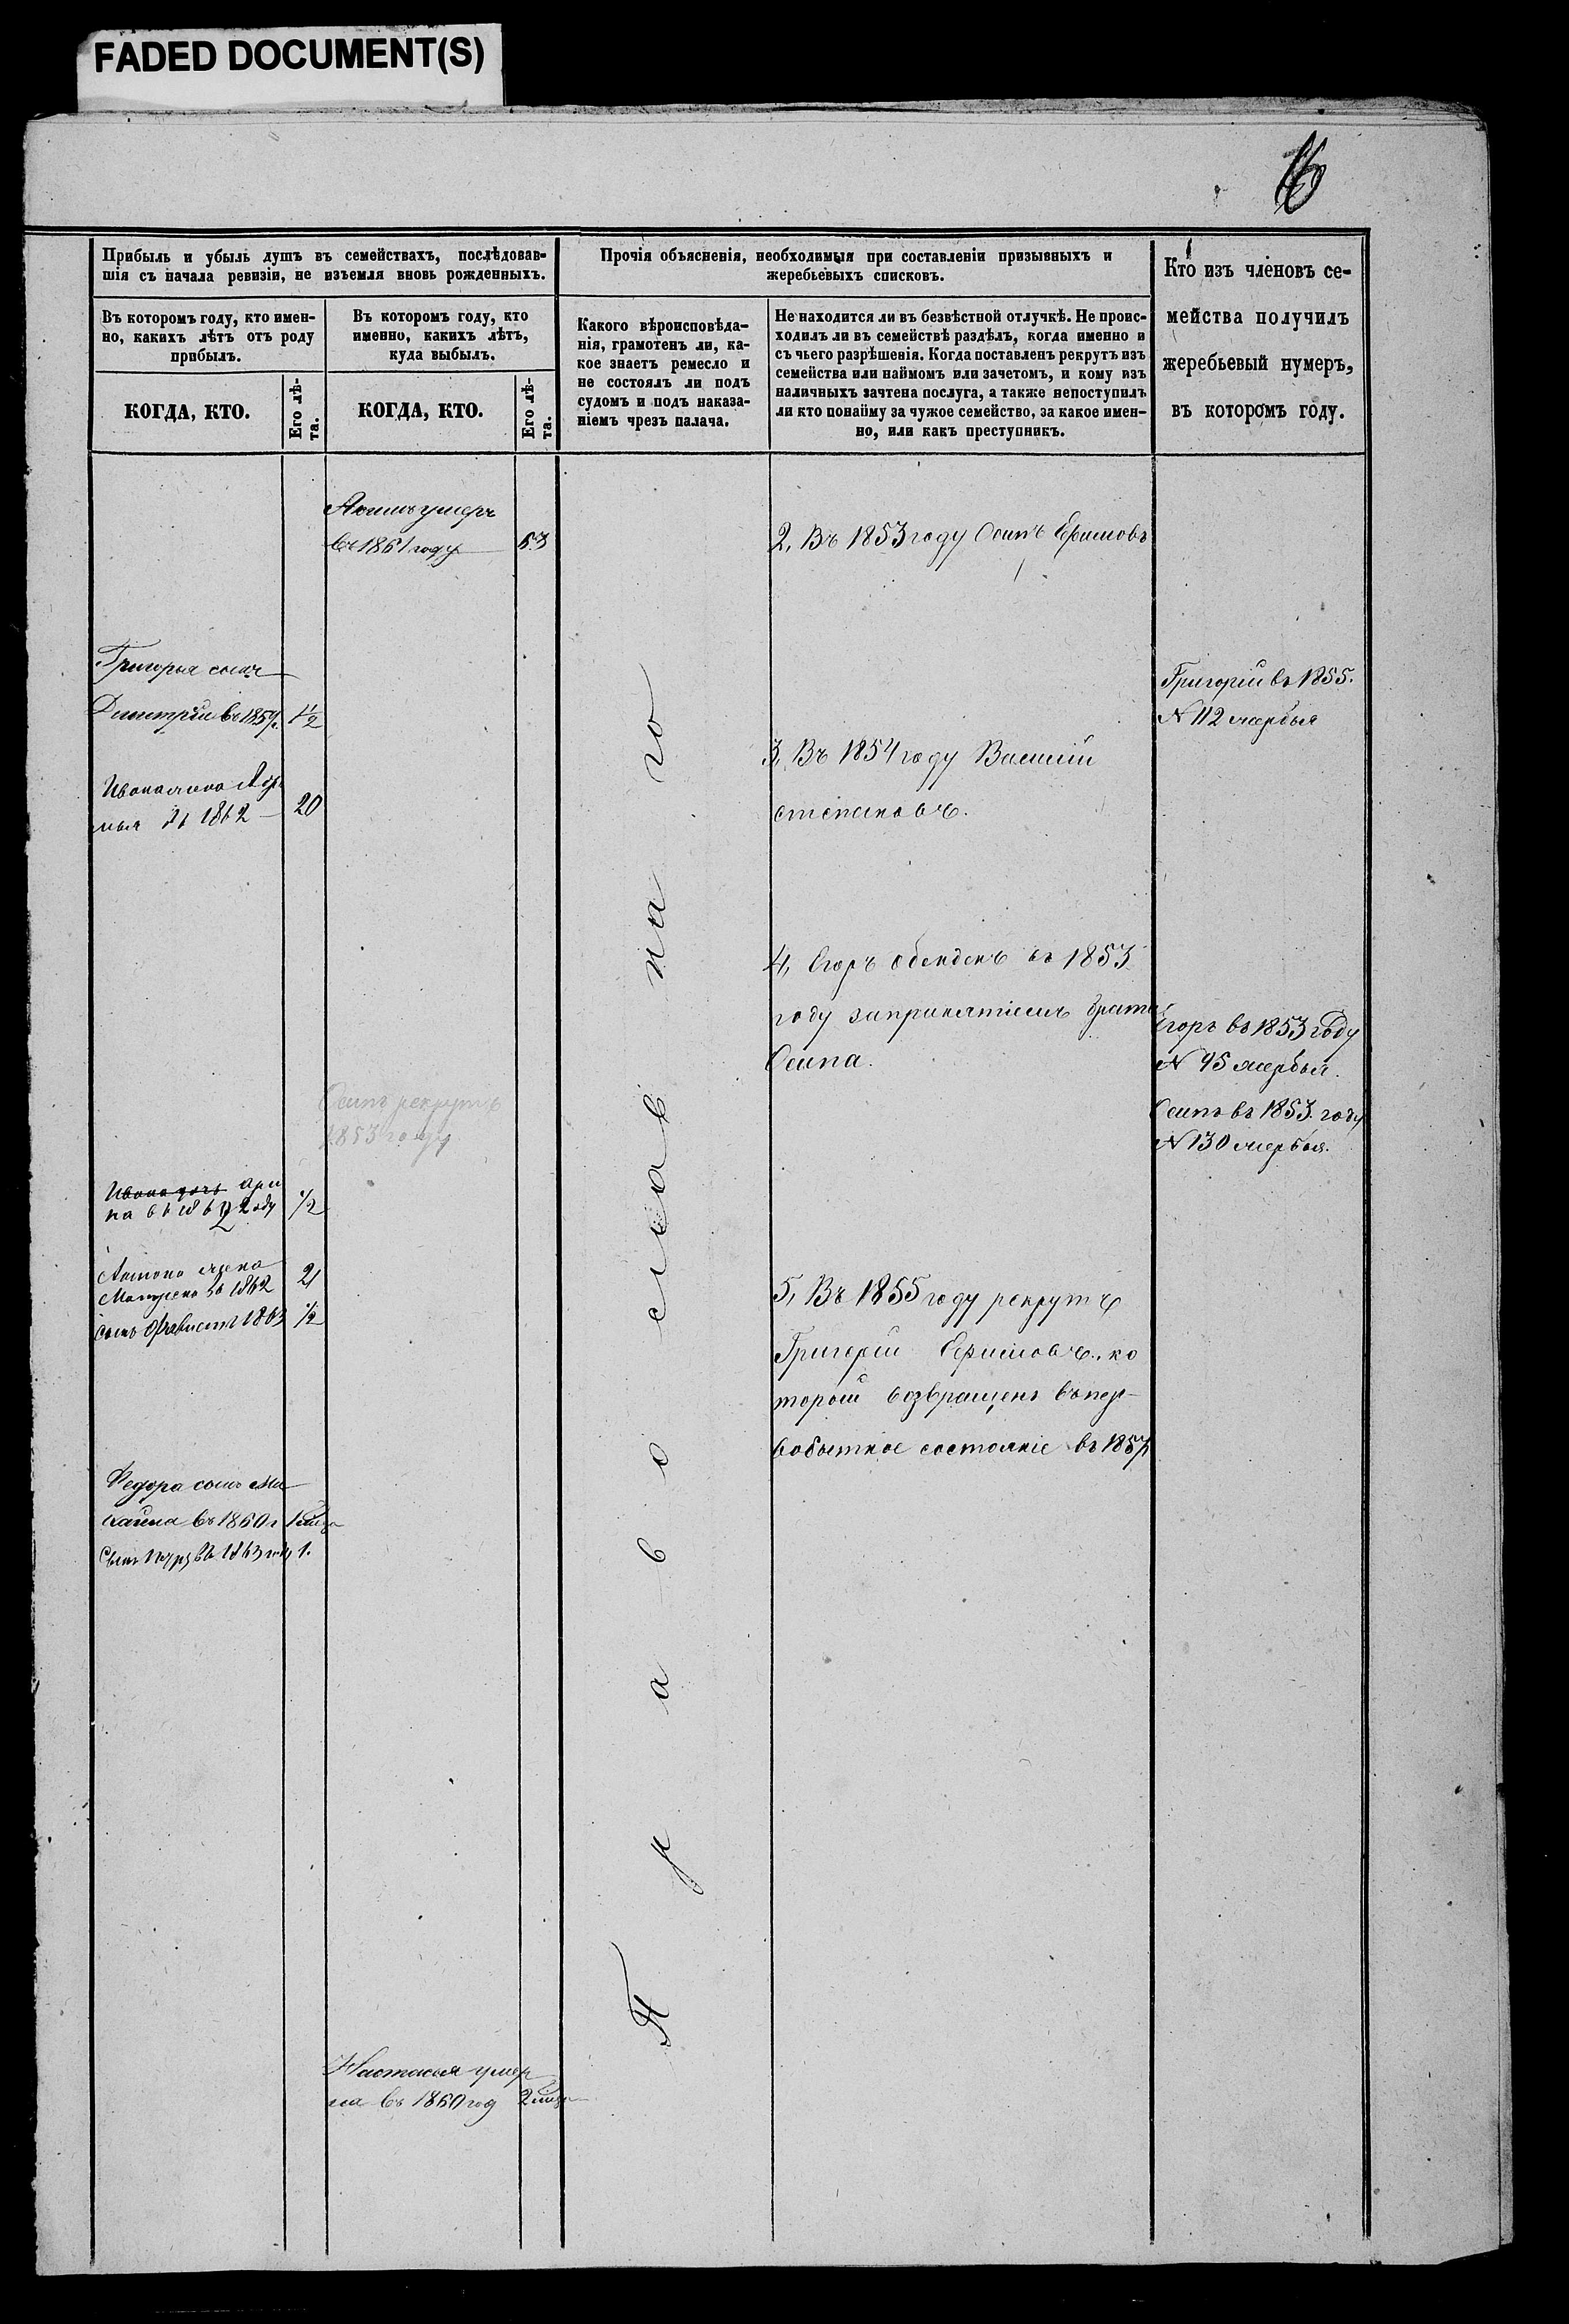 FADED DOCUMENT(S)
16
Прибыль и убыль душъ въ семействахъ, послѣдовав-
шія съ начала ревизіи, не изъемля вновь рожденныхъ.
Прочія объясненія, необходимыя при составленіи призывныхъ и
жеребьевыхъ списковъ.
Кто изъ членовъ се-
мейства получилъ
жеребьевый нумеръ,
въ которомъ году.
Въ которомъ году, кто имен-
но, какихъ лѣтъ отъ роду
прибылъ.
Въ которомъ году, кто
именно, какихъ лѣтъ,
куда выбылъ.
Какого вѣроисповѣда-
нія, грамотенъ ли, ка-
кое знаетъ ремесло и
не состоялъ ли подъ
судомъ и подъ наказа-
ніемъ чрезъ палача.
Не находится ли въ безвѣстной отлучкѣ. Не проис-
ходилъ ли въ семействѣ раздѣлъ, когда именно и
съ чьего разрѣшенія. Когда поставленъ рекрутъ изъ
семейства или наймомъ или зачетомъ, и кому изъ
наличныхъ зачтена послуга, а также непоступилъ
ли кто понайму за чужое семейство, за какое имен-
но, или какъ преступникъ.
КОГДА, КТО.
Его лѣ-
та.
КОГДА, КТО.
Его лѣ-
та.
умеръ
въ 1861 году 63
2, Въ 1853 году Осипъ Ефимовъ
Григорья сынъ
Дмитрій въ 1859 1½
Григорій въ 1855.
N 112 жербья
3, Въ 1854 году Василій
степановъ.
Ивана жена
1862 20
4, Егоръ въ 1853
году запринятіемъ брата
Осипа.
Егоръ въ 1853 году
N 95 жербья.
Осипъ въ 1853. году
N 130 жербья.
Осипъ рекрутъ
1853 году
Ивана дочь Ари
на въ 1862 году ½
Антона жена
Матрена въ 1862 21
сынъ 1863 ½
5, Въ 1855 году рекрутъ
Григорій Ефимовъ, ко
торый возвращенъ въ пер-
вобытное состояніе въ 1857
Федора сынъ Ми
хаила въ 1860 г 1
Сынъ въ 1863 году 1.
Православнаго
Настасья умер
ла въ 1860 год 2